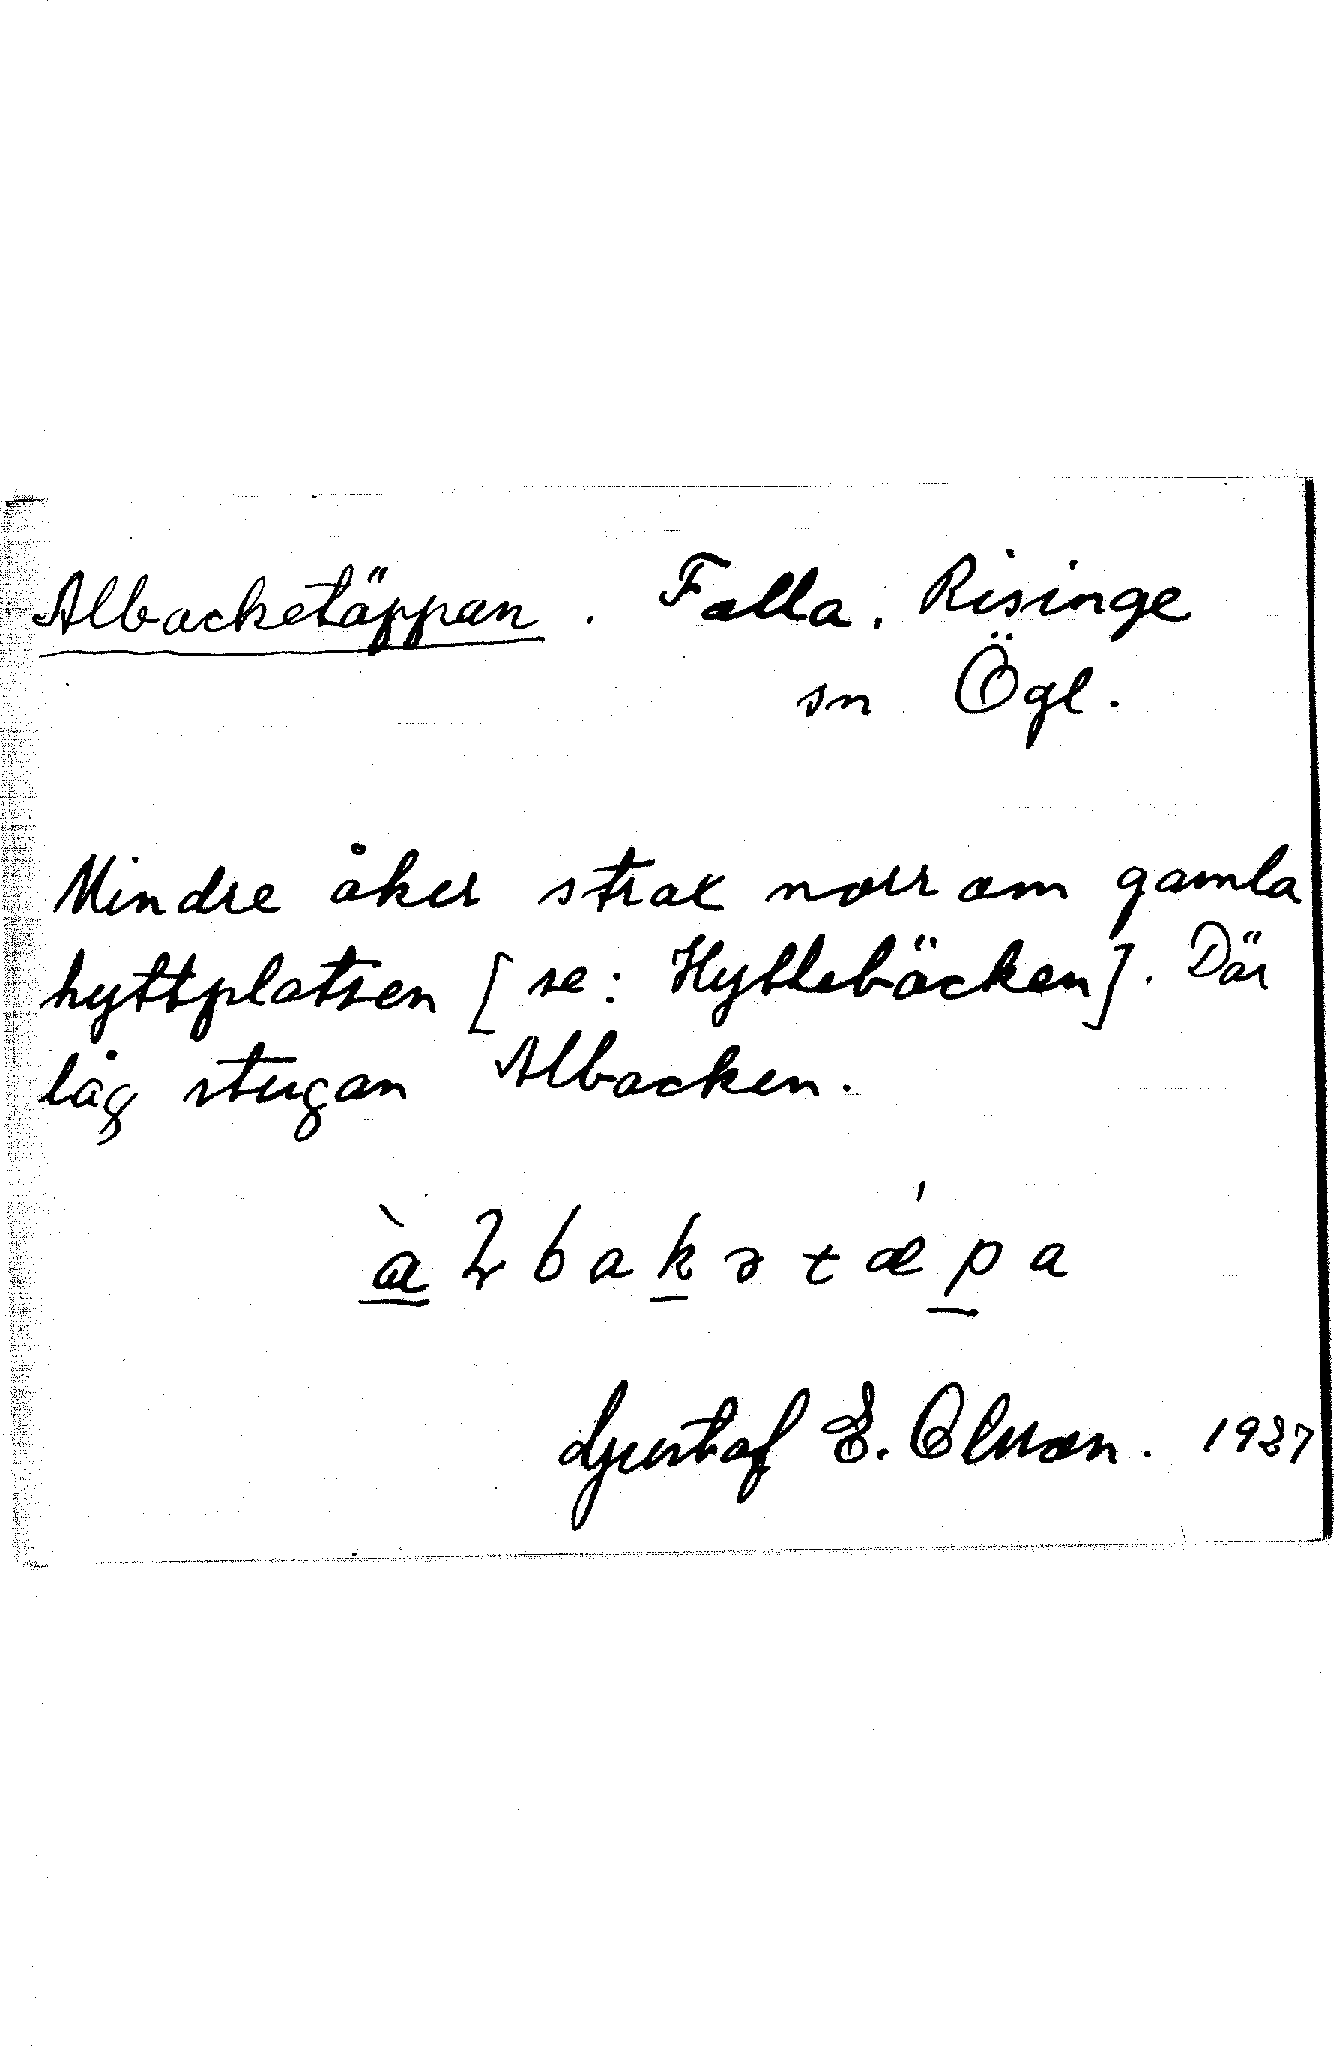 Albacketäppan. Falla. Risinge
sn Ögl.
Mindre åker strax norr om gamla
hyttplatsen [se: Hyttebäcken]. Där
låg stugan Albacken.
Gustaf E. Olsson. 1937